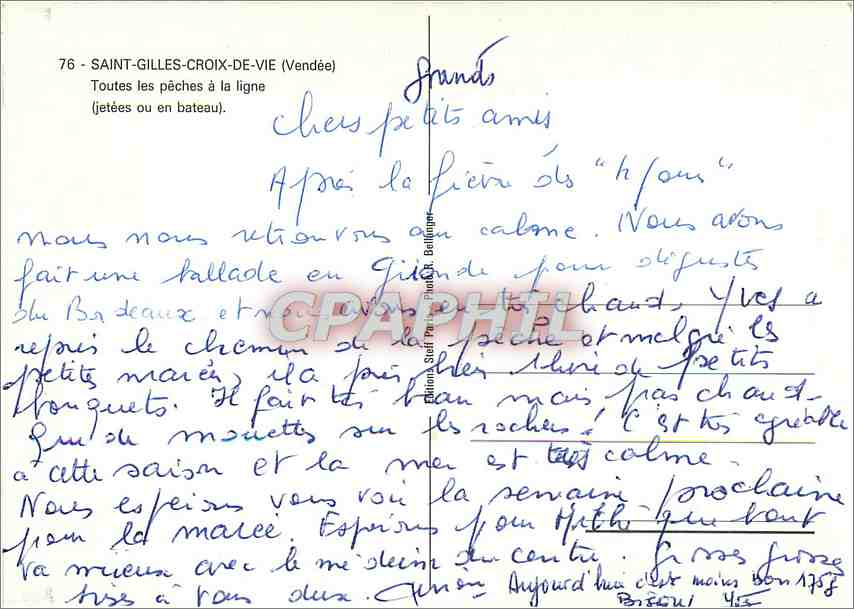 76 - SAINT-GILLES-CROIX-DE-VIE (Vendée)
Toutes les pêches à la ligne
(jetées ou en bateau).
Editions Steff Paris - Photo R. Bellinger
CPAPHIL
grands
chers petits amis
Après la fièvre des "
nous nous retrouvons au calme. Nous avons
fait une ballade en Gironde pour déguster
du Bordeaux et nous avons eu très chaud. Yves a
repris le chemin de la pêche et malgré les
petites marées, il a pris hier 1 livre de petits
bouquets. Il fait très beau mais pas chaud.
Que de mouettes sur les rochers! C'est très agréable
à cette saison et la mer est très calme.
Nous espérons vous voir la semaine prochaine
pour la marée. Espérons pour que tout
va mieux avec le médecin du centre. Grosses grosses
bises à tous deux. Aujourd'hui c'est moins bon 175g
Bisous